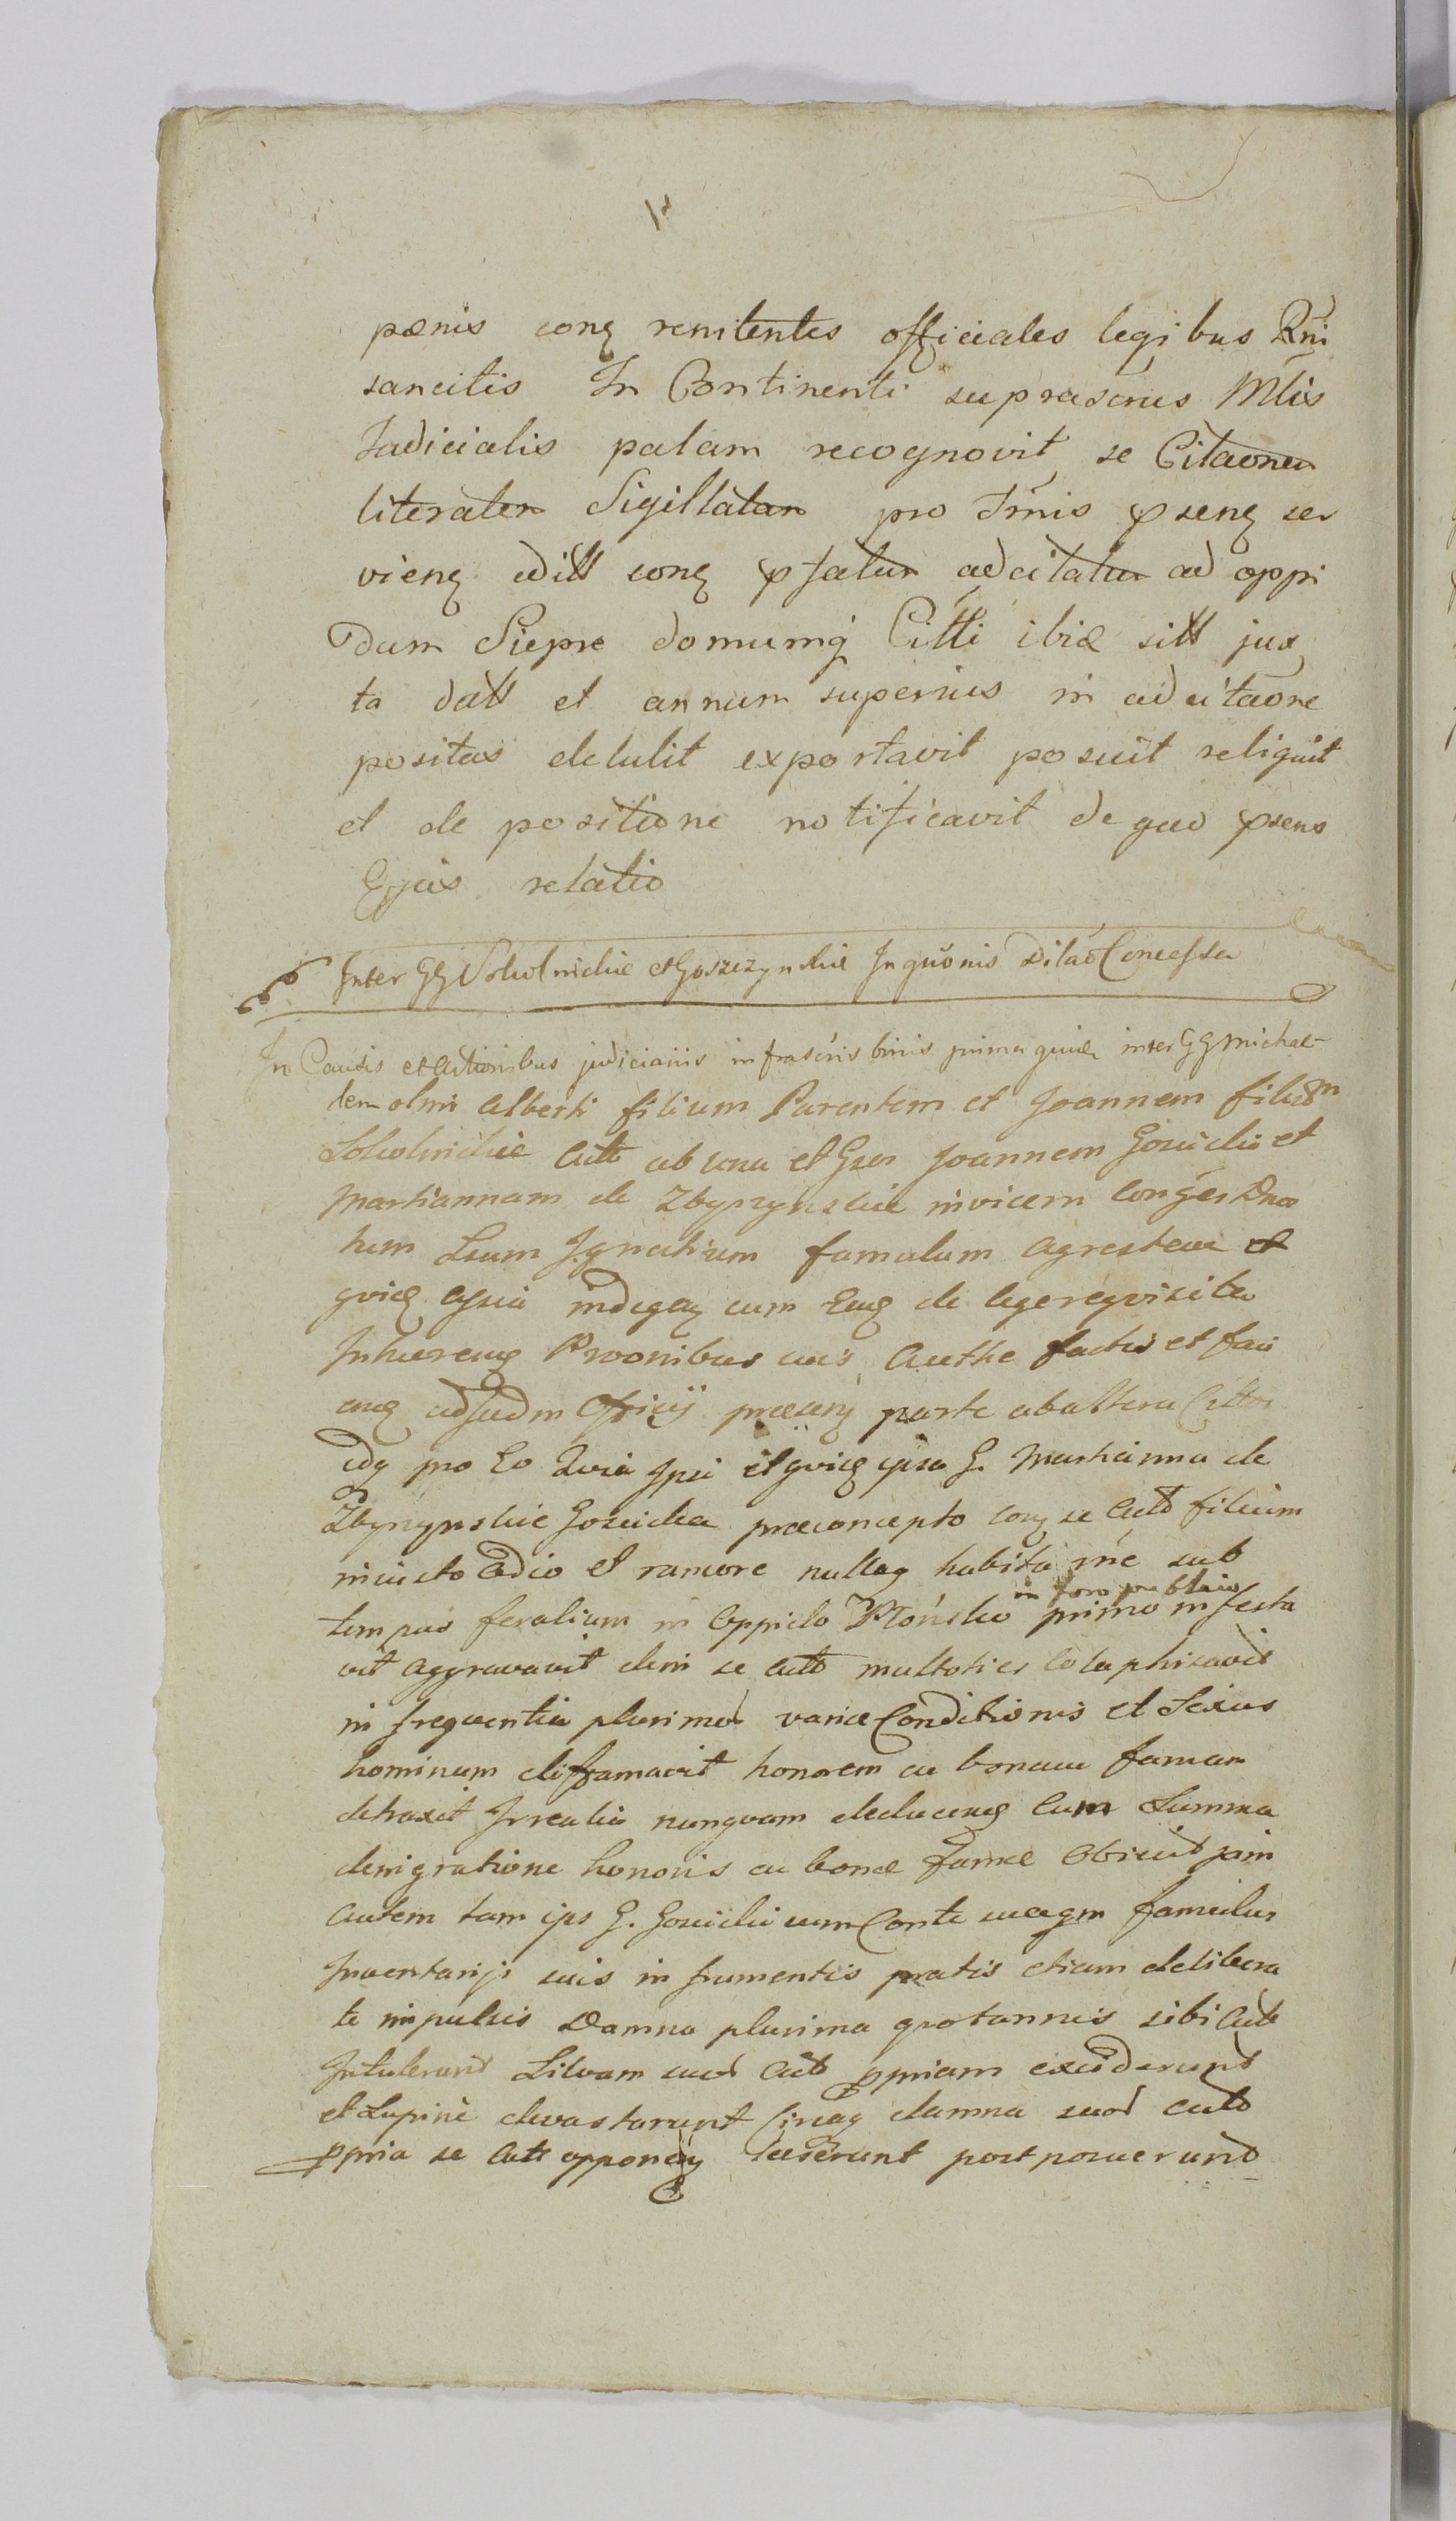 pœnis conq renitentes officiales legibus Rni
sancitis In Continenti suprascrus Mlis
Judicialis palam recognovit se Citaonem
literalem Sigillatam pro Tmis pseng ser
vieng edill conq pfatum adcitatum ad oppi
dum Siepre domumq Citti ibiđ sitt jux
ta datt et annum superius in adcitaone
positas detulit exportavit posuit reliquit
et de positione notificavit de quo psens
Ejus relatio
Inter GG Sokolnickie et Goszczynskie Inquōnis Dilaō Concessa
In Causis et Actionibus judiciariis infrascris binis prima quid inter GG Michae-
lem olim Alberti filium Parentem et Joannem filium
Sokolnickie Actt ab una et Gsos Joannem Gozdicki et
Mariannam de Zbyszynskie invicem Conges Dnos
tum Lsum Ignatium famulum agrestem et
inđigeq cum Eaq de lege reqvisita
Inhæreng Pwonibus suis Actthe factis et faci
enq ad judm Officij parte ab altera Cittos
idq pro Eo Quia Ipsi ipsa G. Marianna de
Zbyszynskie præconcepto conq se Actt filium
iniusto Odio et rancore nullaq habita rne sub
tempus feralium in Oppido Płońsko in foro publico primo infesta
vit aggravavit dein se Actt multoties Colaphisavit
in frequentia plurimor variæ Conditionis et Sexus
hominum diffamavit honorem ac bonam famam
detraxit Irrealia nunquam deducenq Cum Summa
denigratione honoris ac bonæ famæ Obiecit jam
autem tam ips G. cum Conte suaqm familia
Inventarijs suis in frumentis pratis etiam delibera
te impulsis Damna plurima quotannis sibi Actt
Intulerunt Silvam suor Actt ppriam exciderunt
et Lupinè devastarunt Circaq damna suor Actt
ppria se Actt opponeng læserunt postposuerunt